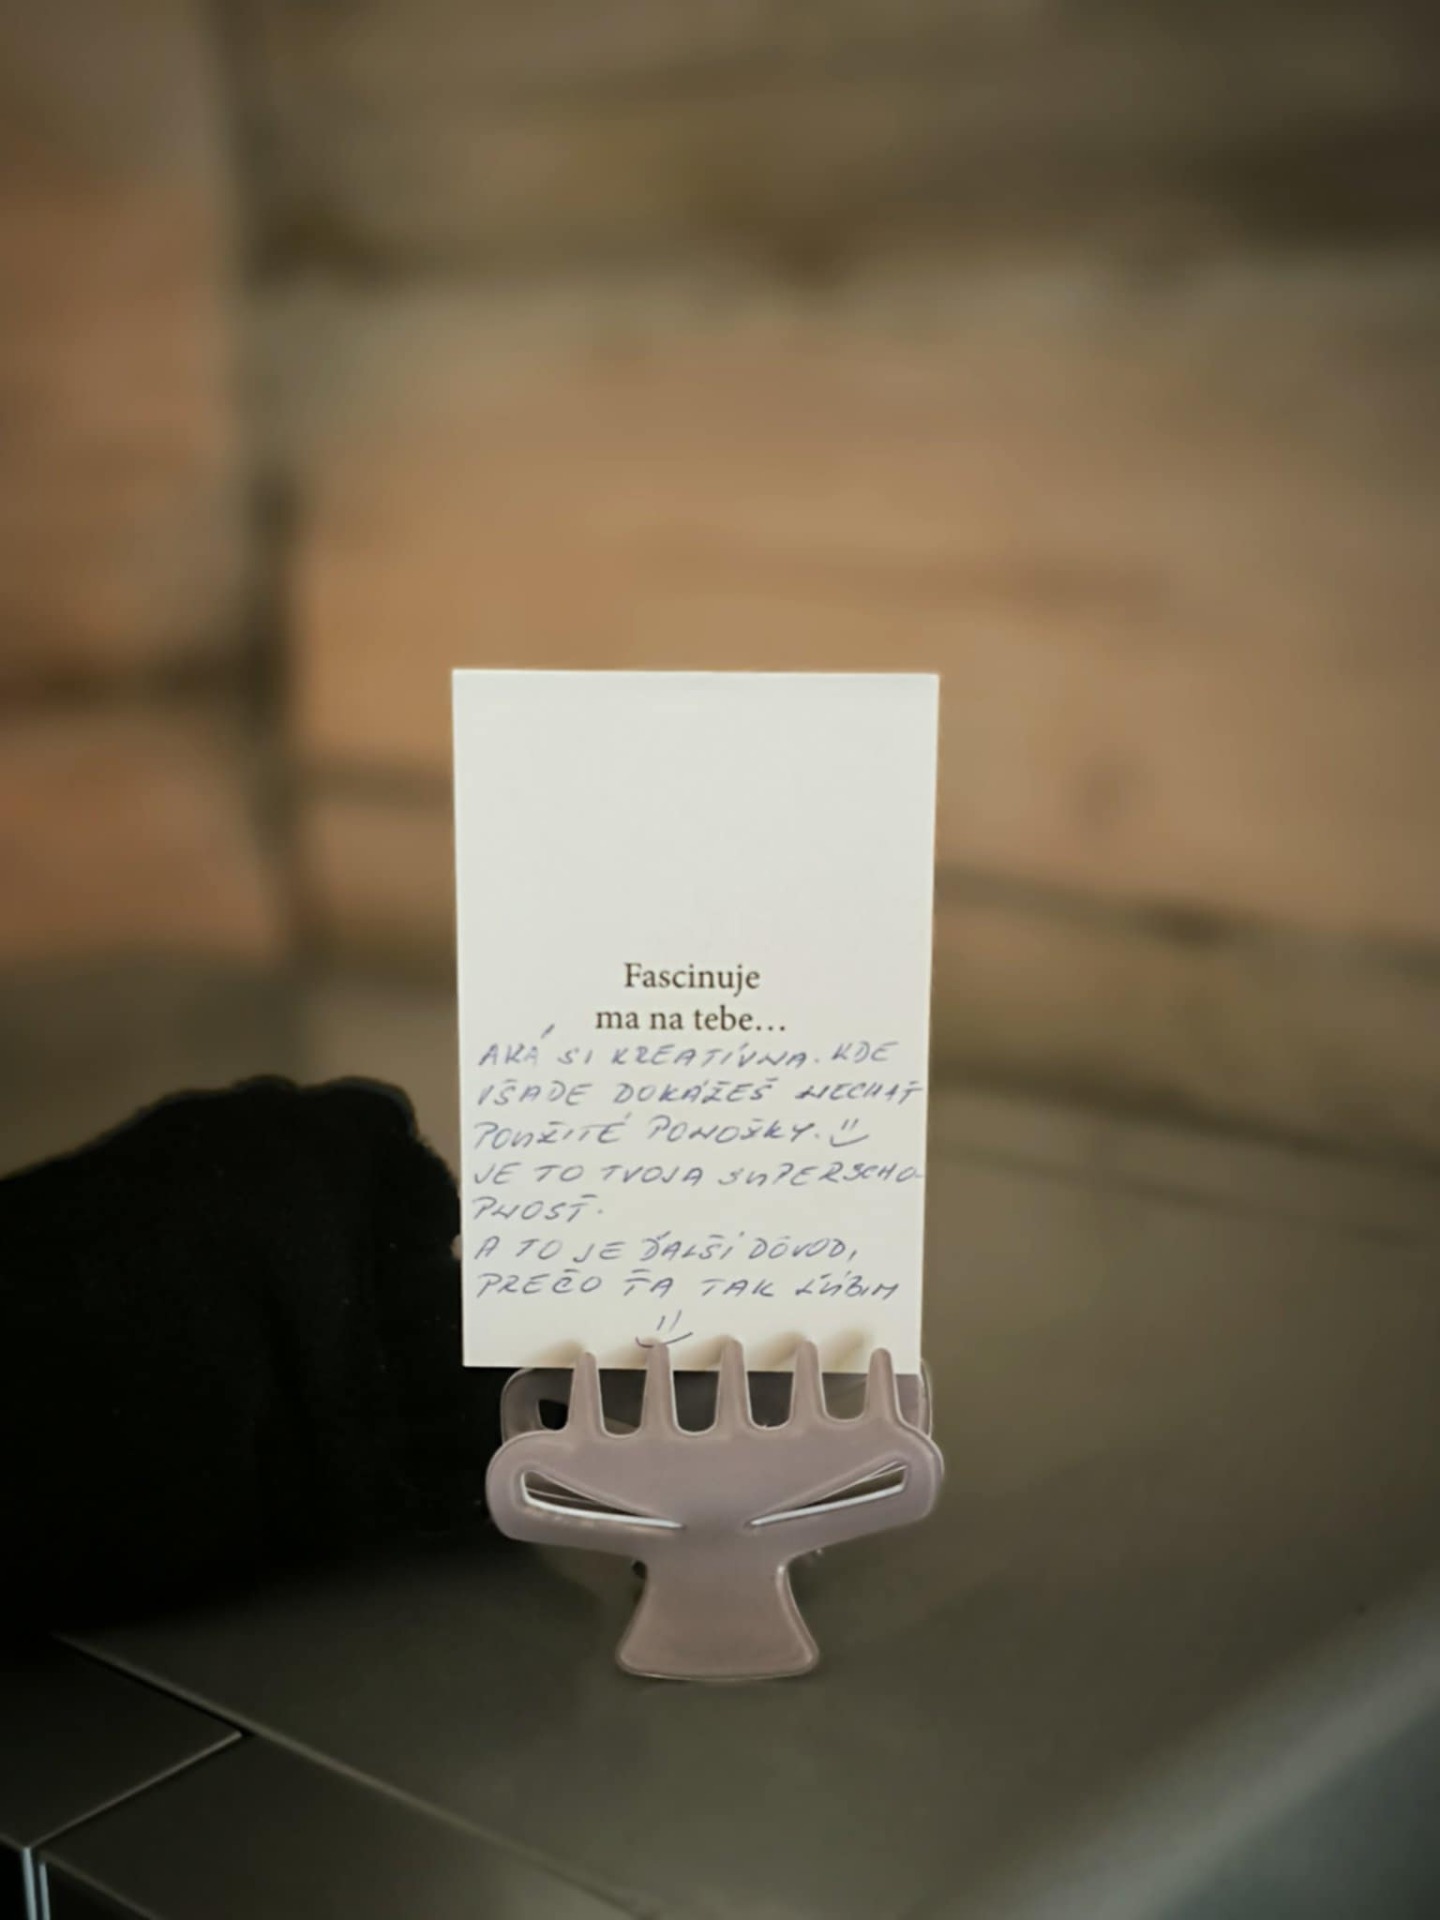 Fascinuje
ma na tebe...
AKÁ SI KREATÍVNA. KDE
VŠADE DOKÁŽEŠ NECHAŤ
POUŽITÉ PONOŽKY.
JE TO TVOJA SUPERSCHO-
PNOSŤ.
A TO JE ĎALŠÍ DÔVOD,
PREČO ŤA TAK ĽÚBIM